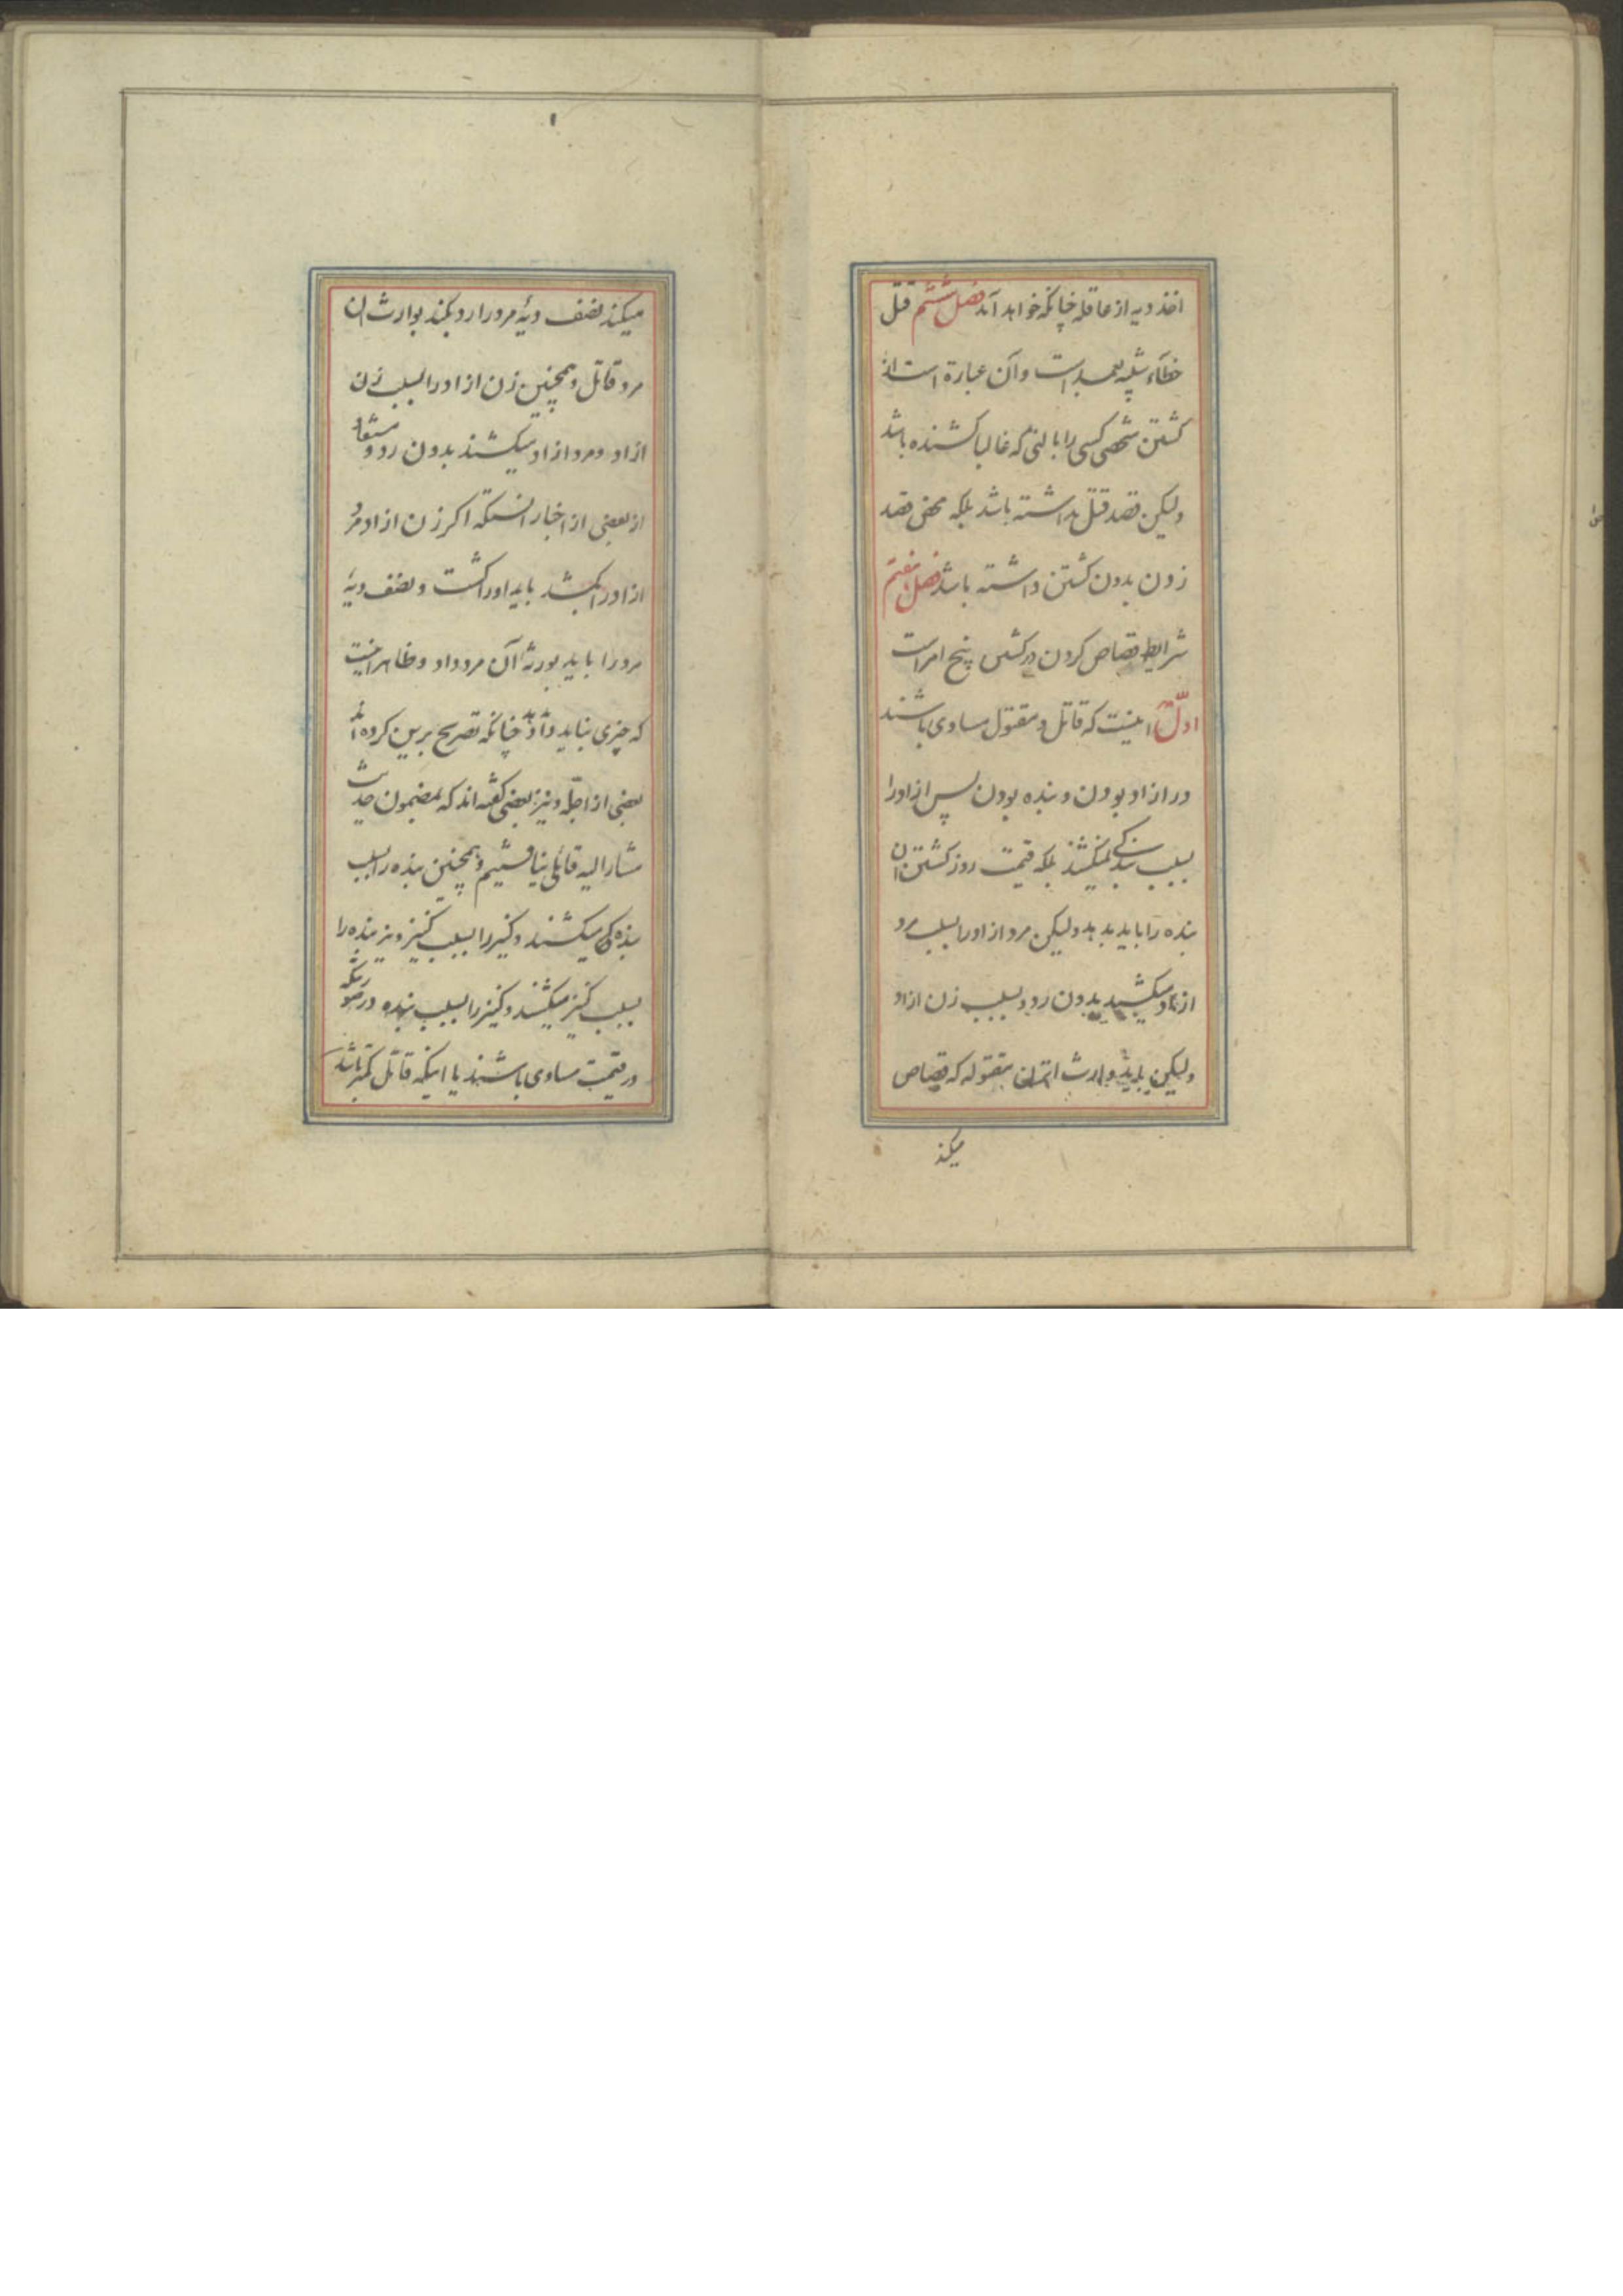 اخذ دیه از عاقله چنانکه خواهد آمد فصل ششم قتل
خطاء شبیه بعمد است و آن عبارة است از
کشتن شخصی کسی را بالتی که غالبا کشنده باشد
ولیکن قصد قتل نداشته باشد بلکه محض قصد
زدن بدون کشتن داشته باشد فصل هفتم
شرایط قصاص کردن در کشتن پنج امر است
اوّل اینست که قاتل و مقتول مساوی باشند
در ازاد بودن و بنده بودن پس ازاد را
بسبب بندکی نمیکشند بلکه قیمت روز کشتن ان
بنده را باید بدهد ولیکن مرد ازاد را بسبب مرد
ازاد میکشند بدون رد و بسبب زن ازاد
ولیکن باید وارث مقتوله که قصاص
میکند
میکند نصف دیۀ مرد را رد بکند بوارث ان
مرد قاتل و همچنین زن ازاد را بسبب زن
ازاد و مرد ازاد میکشند بدون رد و مستفاد
از بعضی از اخبار انستکه اکر زن ازاد مرد
ازاد را بکشد باید او را کشت و نصف دیۀ
مرد را باید بورثۀ آن مرد داد و ظاهر اینست
که چیزی نباید داد چنانکه تصریح برین کرده اند
بعضی از اجلّه و نیز بعضی کفته اند که بمضمون حدیث
مشار الیه قائلی نیافتیم و همچنین بنده را بسبب
بنده میکشند و کنیز را بسبب کنیز و نیز بنده را
بسبب کنیز میکشند و کنیز را بسبب بنده در صورتیکه
در قیمت مساوی باشند یا اینکه قاتل کمتر باشد